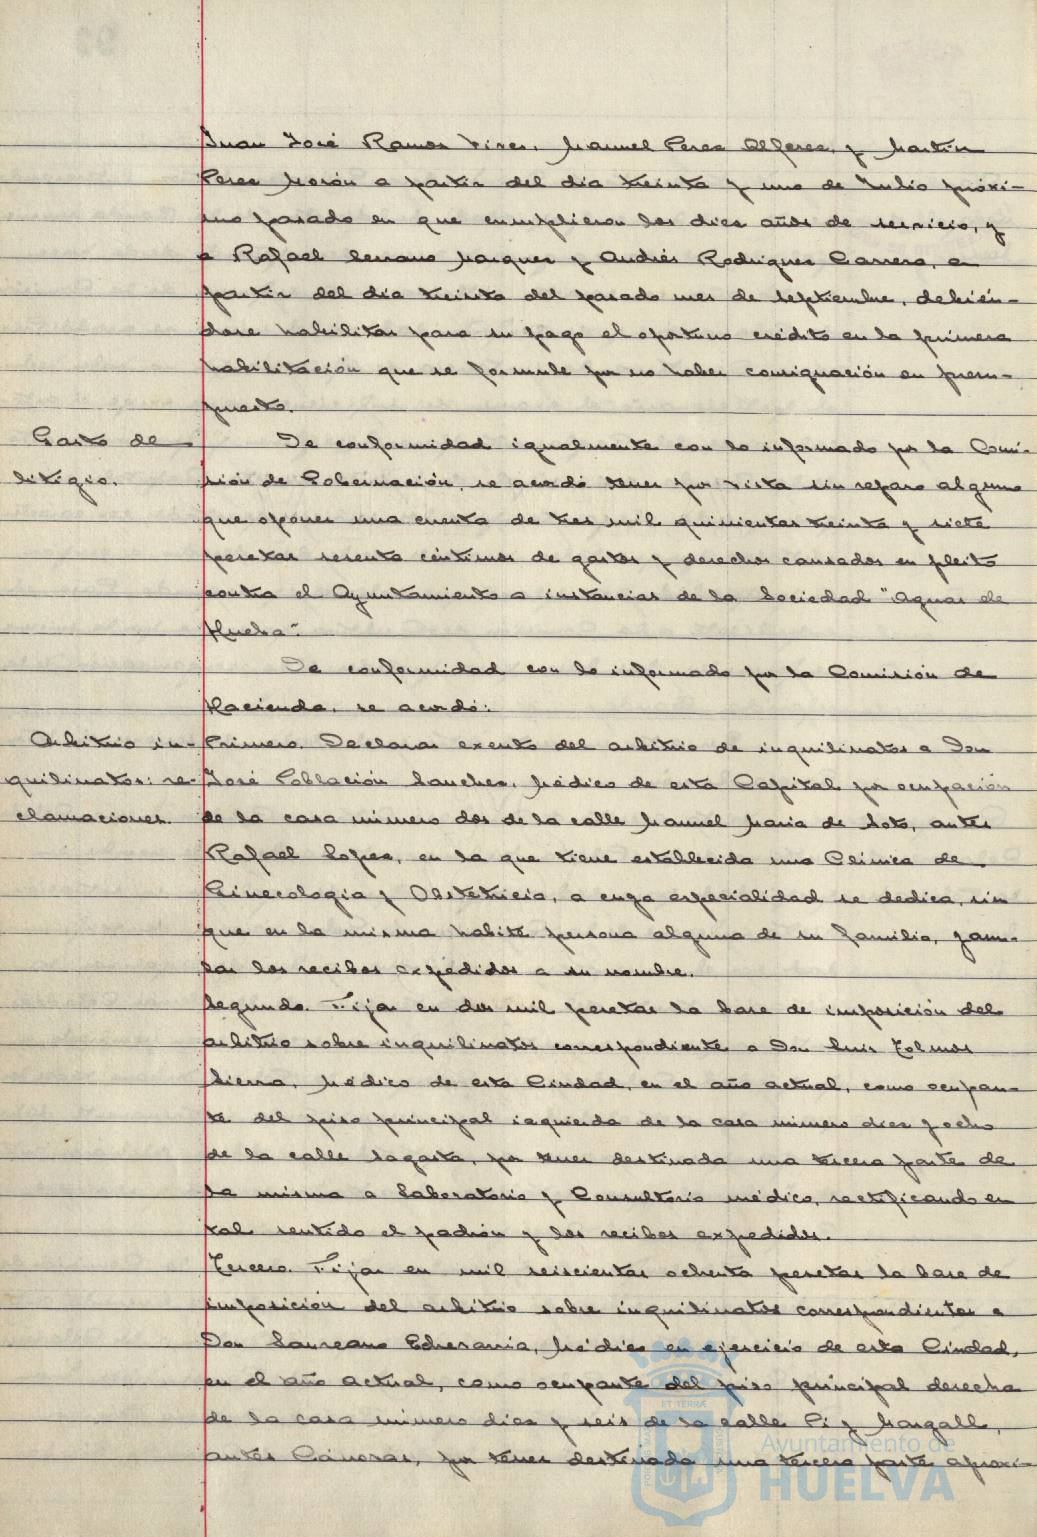 Juan José Ramos Vires, Manuel Perez Alferez, y Martín
Perez Morón a partir del dia treinta y uno de Julio próxi-
mo pasado en que cumplieron los diez años de servicio, y
a Rafael Serrano Marquez y Andrés Rodriguez Carrero, a
partir del dia treinta del pasado mes de septiembre, debién-
dose habilitar para su pago el oportuno crédito en la primera
habilitación que se formule por no haber consignación en presu-
puesto.
Gasto de
litigio.
De conformidad igualmente con lo informado por la Comi-
sión de Gobernación, se acordó tener por vista sin reparo alguno
que oponer una cuenta de tres mil quinientas treinta y siete
pesetas sesenta céntimos de gastos y derechos causados en pleito
contra el Ayuntamiento a instancias de la Sociedad "Aguas de
Huelva".
De conformidad con lo informado por la Comisión de
Hacienda, se acordó:
Arbitrio in-
quilinatos: re-
clamaciones.
Primero. Declarar exento del arbitrio de inquilinatos a Don
José Población Sanchez, Médico de esta Capital por ocupación
de la casa número dos de la calle Manuel Maria de Soto, antes
Rafael Lopez, en la que tiene establecida una Clínica de
Ginecologia y Obstetricia, a cuya especialidad se dedica, sin
que en la misma habite persona alguna de su familia, y anu-
lar los recibos expedidos a su nombre.
Segundo. Fijar en dos mil pesetas la base de imposición del
arbitrio sobre inquilinatos correspondiente a Don Luis
Sierra, Médico de esta Ciudad, en el año actual, como ocupan-
te del piso principal izquierda de la casa número diez y ocho
de la calle Sagasta, por tener destinada una tercera parte de
la misma a Laboratorio y Consultorio médico, rectificando en
tal sentido el padrón y los recibos expedidos.
Tercero. Fijar en mil seiscientas ochenta pesetas la base de
imposición del arbitrio sobre inquilinatos correspondientes a
Don Laureano Echevarria, Médico en ejercicio de esta Ciudad,
en el año actual, como ocupante del piso principal derecha
de la casa número diez y seis de la calle Pi y Margall,
antes Cánovas, por tener destinada una tercera parte aproxi-
Ayuntamiento de
HUELVA